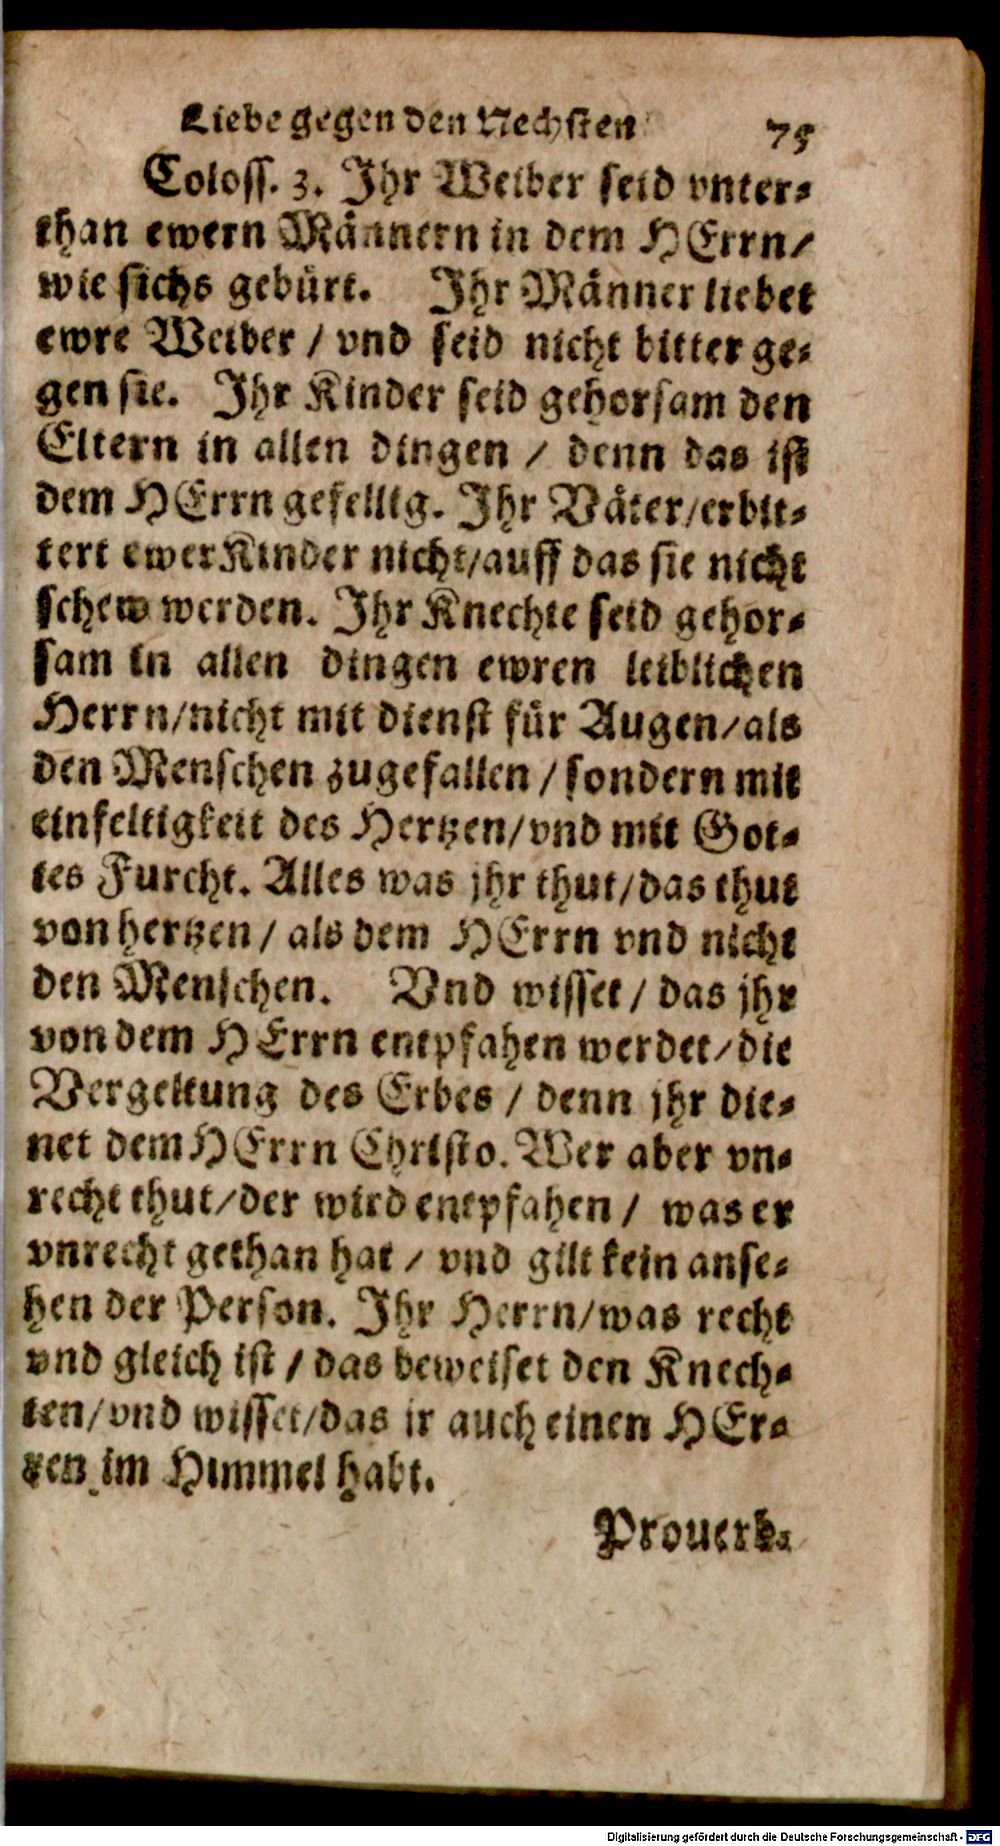 Liebe gegen den Nechsten 75
Coloss. 3. Ihr Weiber seid vnter-
than ewern Männern in dem HErrn/
wie sichs gebürt. Ihr Männer liebet
ewre Weiber / vnd seid nicht bitter ge-
gen sie. Ihr Kinder seid gehorsam den
Eltern in allen dingen / denn das ist
dem HErrn gefellig. Ihr Väter/erbit-
tert ewer Kinder nicht/auff das sie nicht
schew werden. Ihr Knechte seid gehor-
sam in allen dingen ewren leiblichen
Herrn/nicht mit dienst für Augen/als
den Menschen zugefallen / sondern mit
einfeltigkeit des Hertzen/vnd mit Got-
tes Furcht. Alles was jhr thut/das thut
von hertzen / als dem HErrn vnd nicht
den Menschen. Vnd wisset / das jhr
von dem HErrn entpfahen werdet/die
Vergeltung des Erbes / denn jhr die-
net dem HErrn Christo. Wer aber vn-
recht thut/der wird entpfahen / was er
vnrecht gethan hat / vnd gilt kein anse-
hen der Person. Ihr Herrn/was recht
vnd gleich ist / das beweiset den Knech-
ten/vnd wisset/das ir auch einen HEr-
ren im Himmel habt.
Prouerb.
Digitalisierung gefördert durch die Deutsche Forschungsgemeinschaft - DFG